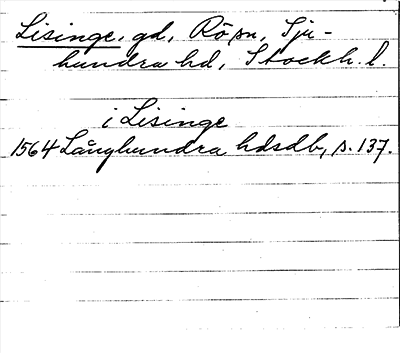 Lisinge, gd, Rö sn, Sju-
hundra hd, Stockh. l.
i Lisinge
1564 Långhundra hdsdb, s. 137.